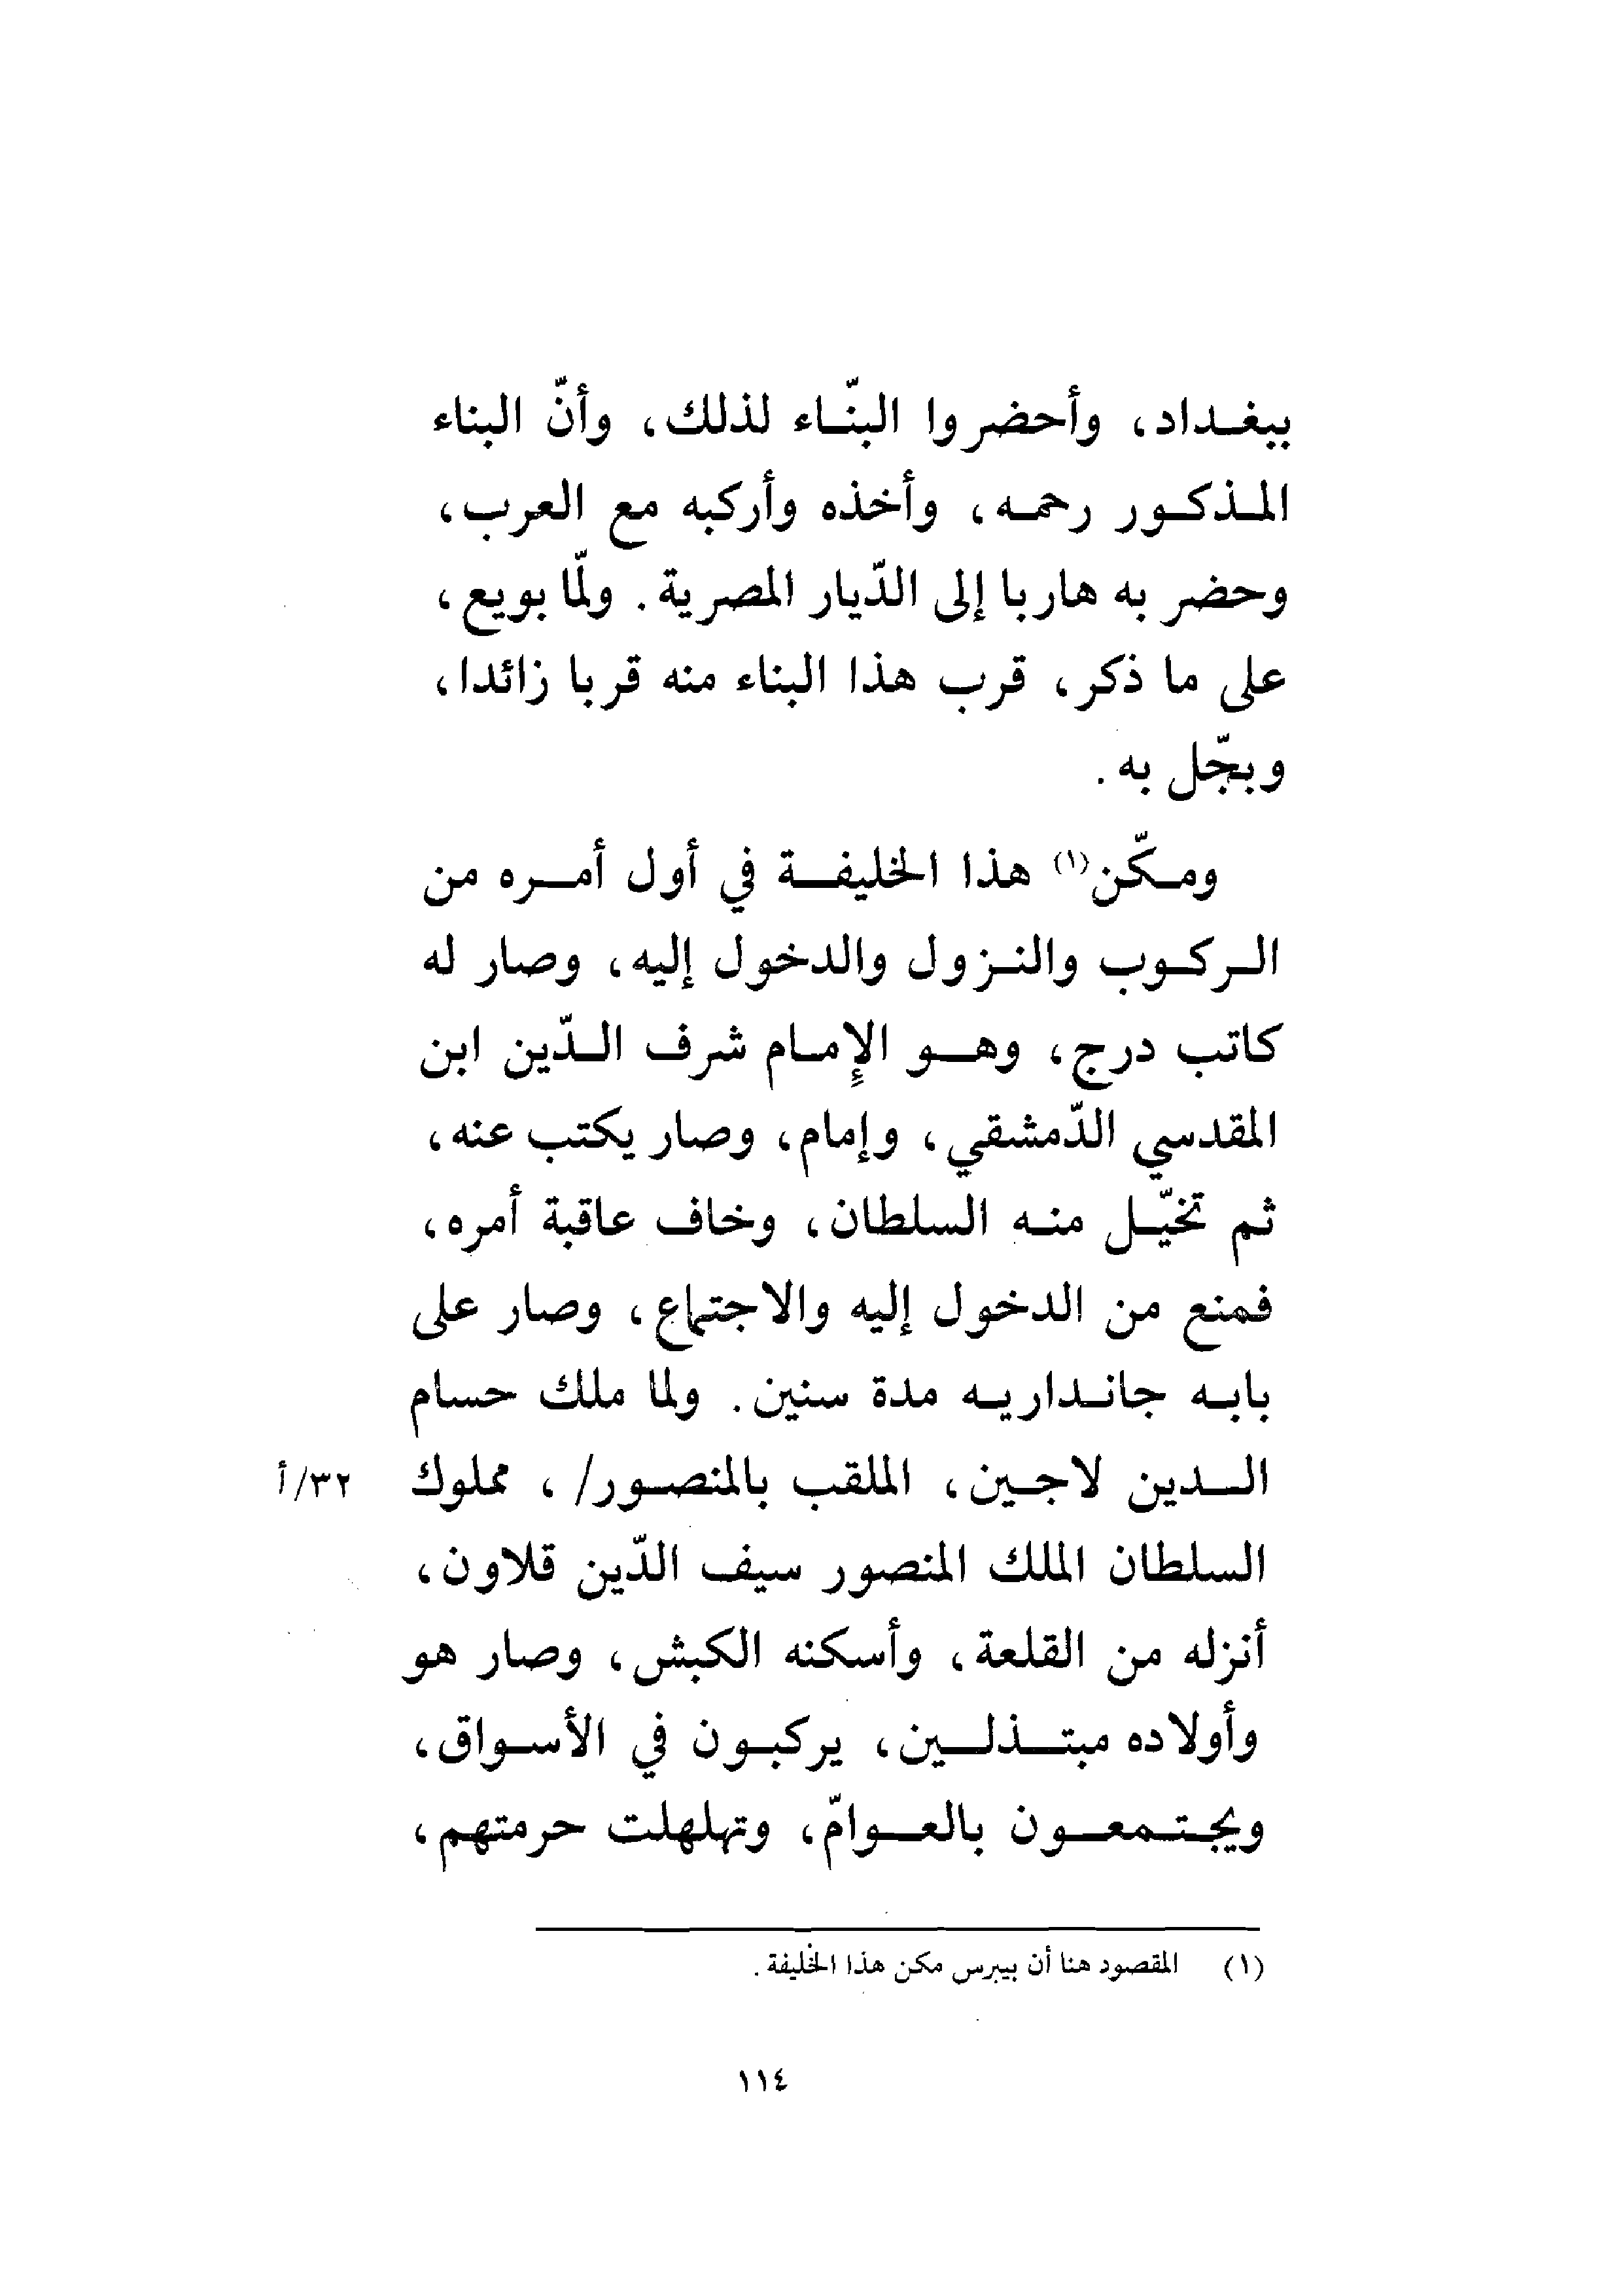 ببغداد، وأحضروا البنّاء لذلك، وأنّ البناء
المذكور رحمه، وأخذه وأركبه مع العرب،
وحضر به هاربا إلى الدّيار المصرية. ولمّا بويع،
على ما ذكر، قرب هذا البناء منه قربا زائدا،
وبجّل به.
ومكّن(١) هذا الخليفة في أول أمره من
الركوب والنزول والدخول إليه، وصار له
كاتب درج، وهو الإمام شرف الدّين ابن
المقدسي الدّمشقي، وإمام، وصار يكتب عنه،
ثم تخيّل منه السلطان، وخاف عاقبة أمره،
فمنع من الدخول إليه والاجتماع، وصار على
بابه جانداريه مدة سنين. ولما ملك حسام
الدين لاجين، الملقب بالمنصور/، مملوك ٣٢/أ
السلطان الملك المنصور سيف الدّين قلاون،
أنزله من القلعة، وأسكنه الكبش، وصار هو
وأولاده مبتذلين، يركبون في الأسواق،
ويجتمعون بالعوامّ، وتهلهلت حرمتهم،
(١) المقصود هنا أن بيبرس مكن هذا الخليفة.
١١٤